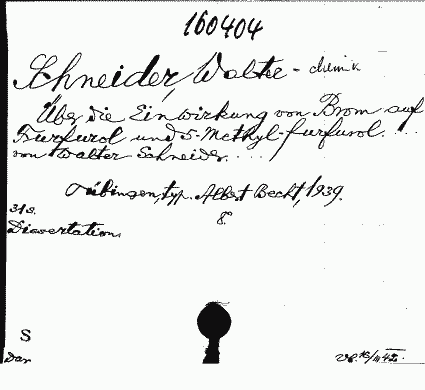 160404
Schneider, Walter - chemik
Über die Einwirkung von Brom auf
Furfurol und 5-Methyl-furfurol. ...
von Walter Schneider. ....
Tübingen, typ. Albert Becht, 1939.
31s. 8°.
Dissertation.
S
Dar